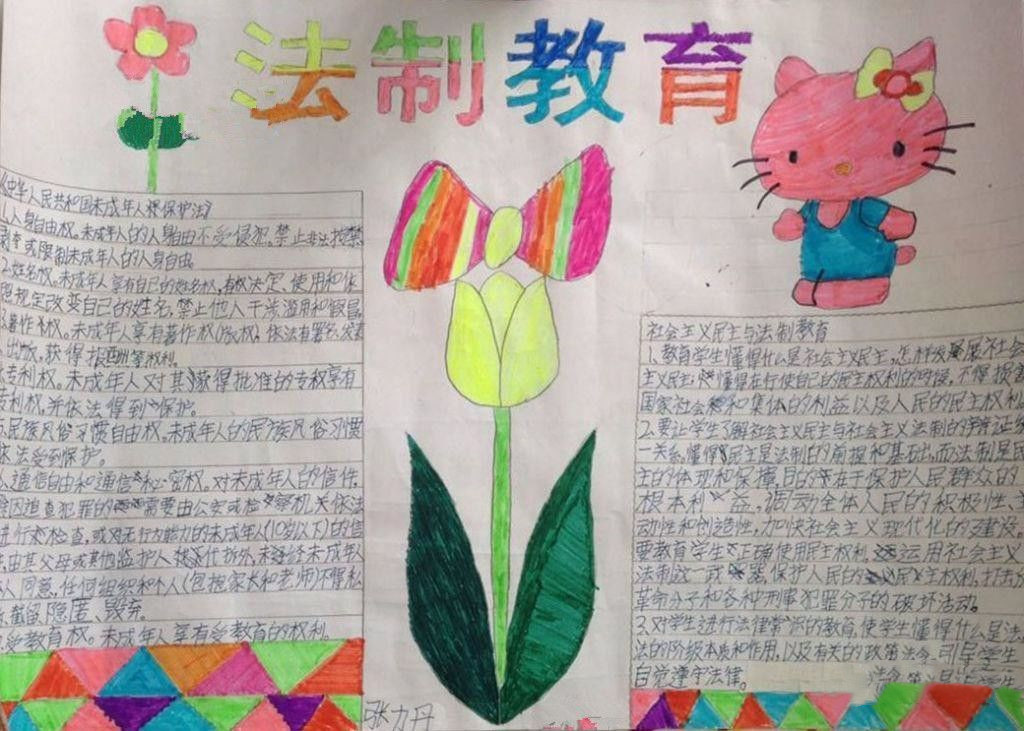 法制教育
《中华人民共和国未成年人保护法》
1.人身自由权。未成年人的人身自由不受侵犯,禁止非法拘禁
剥夺或限制未成年人的人身自由
2.姓名权。未成年人享有自己的姓名权,有权决定、使用和依
照规定改变自己的姓名,禁止他人干涉滥用和假冒
3.著作权。未成年人享有著作权(版权),依法有署名、发表
出版,获得报酬等权利。
专利权。未成年人对其获得批准的专权享有
专利权,并依法得到保护。
民族风俗习惯自由权。未成年人的民族风俗习惯
依法受到保护。
通信自由和通信秘密权。对未成年人的信件
除因追查犯罪的需要由公安或检察机关依法
进行检查,或对无行为能力的未成年人(10岁以下)的信
由其父母或其他监护人代拆外,未经未成年人
人同意,任何组织和个人(包括家长和老师)不得私
截留、隐匿、毁弃。
受教育权。未成年人享有受教育的权利。
张力丹
社会主义民主与法制教育
1.教育学生懂得什么是社会主义民主,怎样发展社会
主义民主,懂得在行使自己的民主权利的时候,不得损害
国家社会和集体的利益以及人民的民主权利
2.要让学生了解社会主义民主与社会主义法制的辩证统
一关系,懂得民主是法制的前提和基础,而法制是民
主的体现和保障,目的在于保护人民群众的
根本利益,调动全体人民的积极性、主
动性和创造性,加快社会主义现代化的建设。
要教育学生正确使用民主权利,运用社会主义
法制这一武器,保护人民的民主权利,打击反
革命分子和各种刑事犯罪分子的破坏活动。
3.对学生进行法律常识的教育,使学生懂得什么是法,
法的阶级本质和作用,以及有关的政策法令,引导学生
自觉遵守法律。